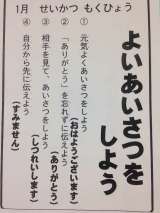 1月 せいかつ もくひょう
よいあいさつを
しよう
① 元気よくあいさつをしよう
(おはようございます)
② 「ありがとう」を忘れずに伝えよう
(ありがとう)
③ 相手を見て、あいさつをしよう
(しつれいします)
④ 自分から先に伝えよう
(すみません)